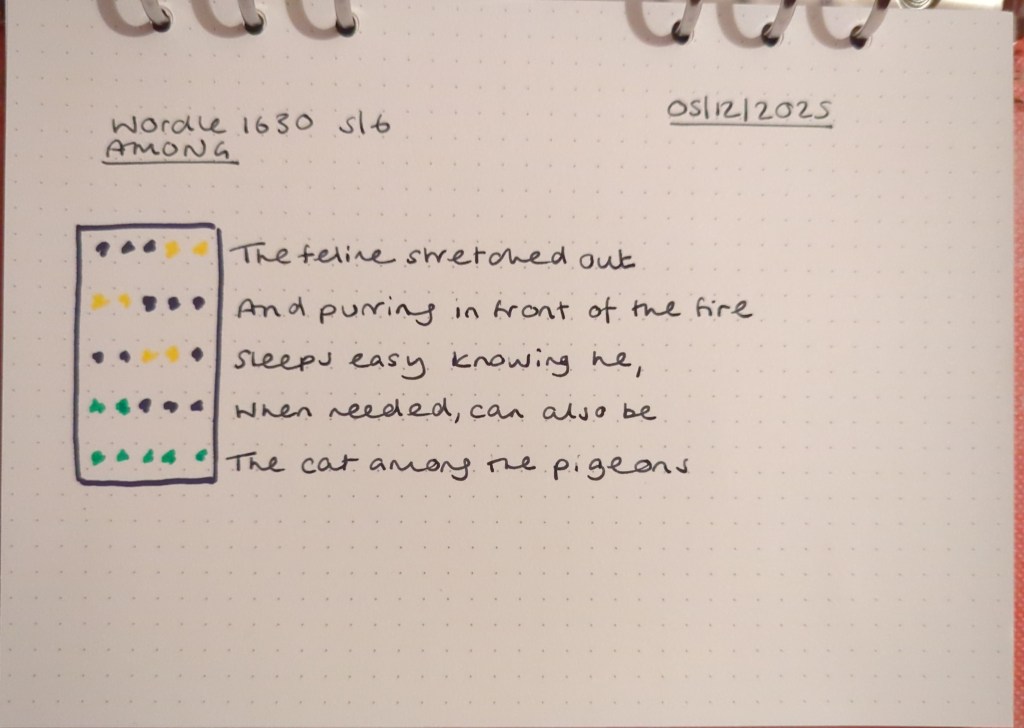 Wordle 1630 5/6
AMONG
05/12/2025
The feline stretched out
And purring in front of the fire
Sleeps easy knowing he,
When needed, can also be
The cat among the pigeons